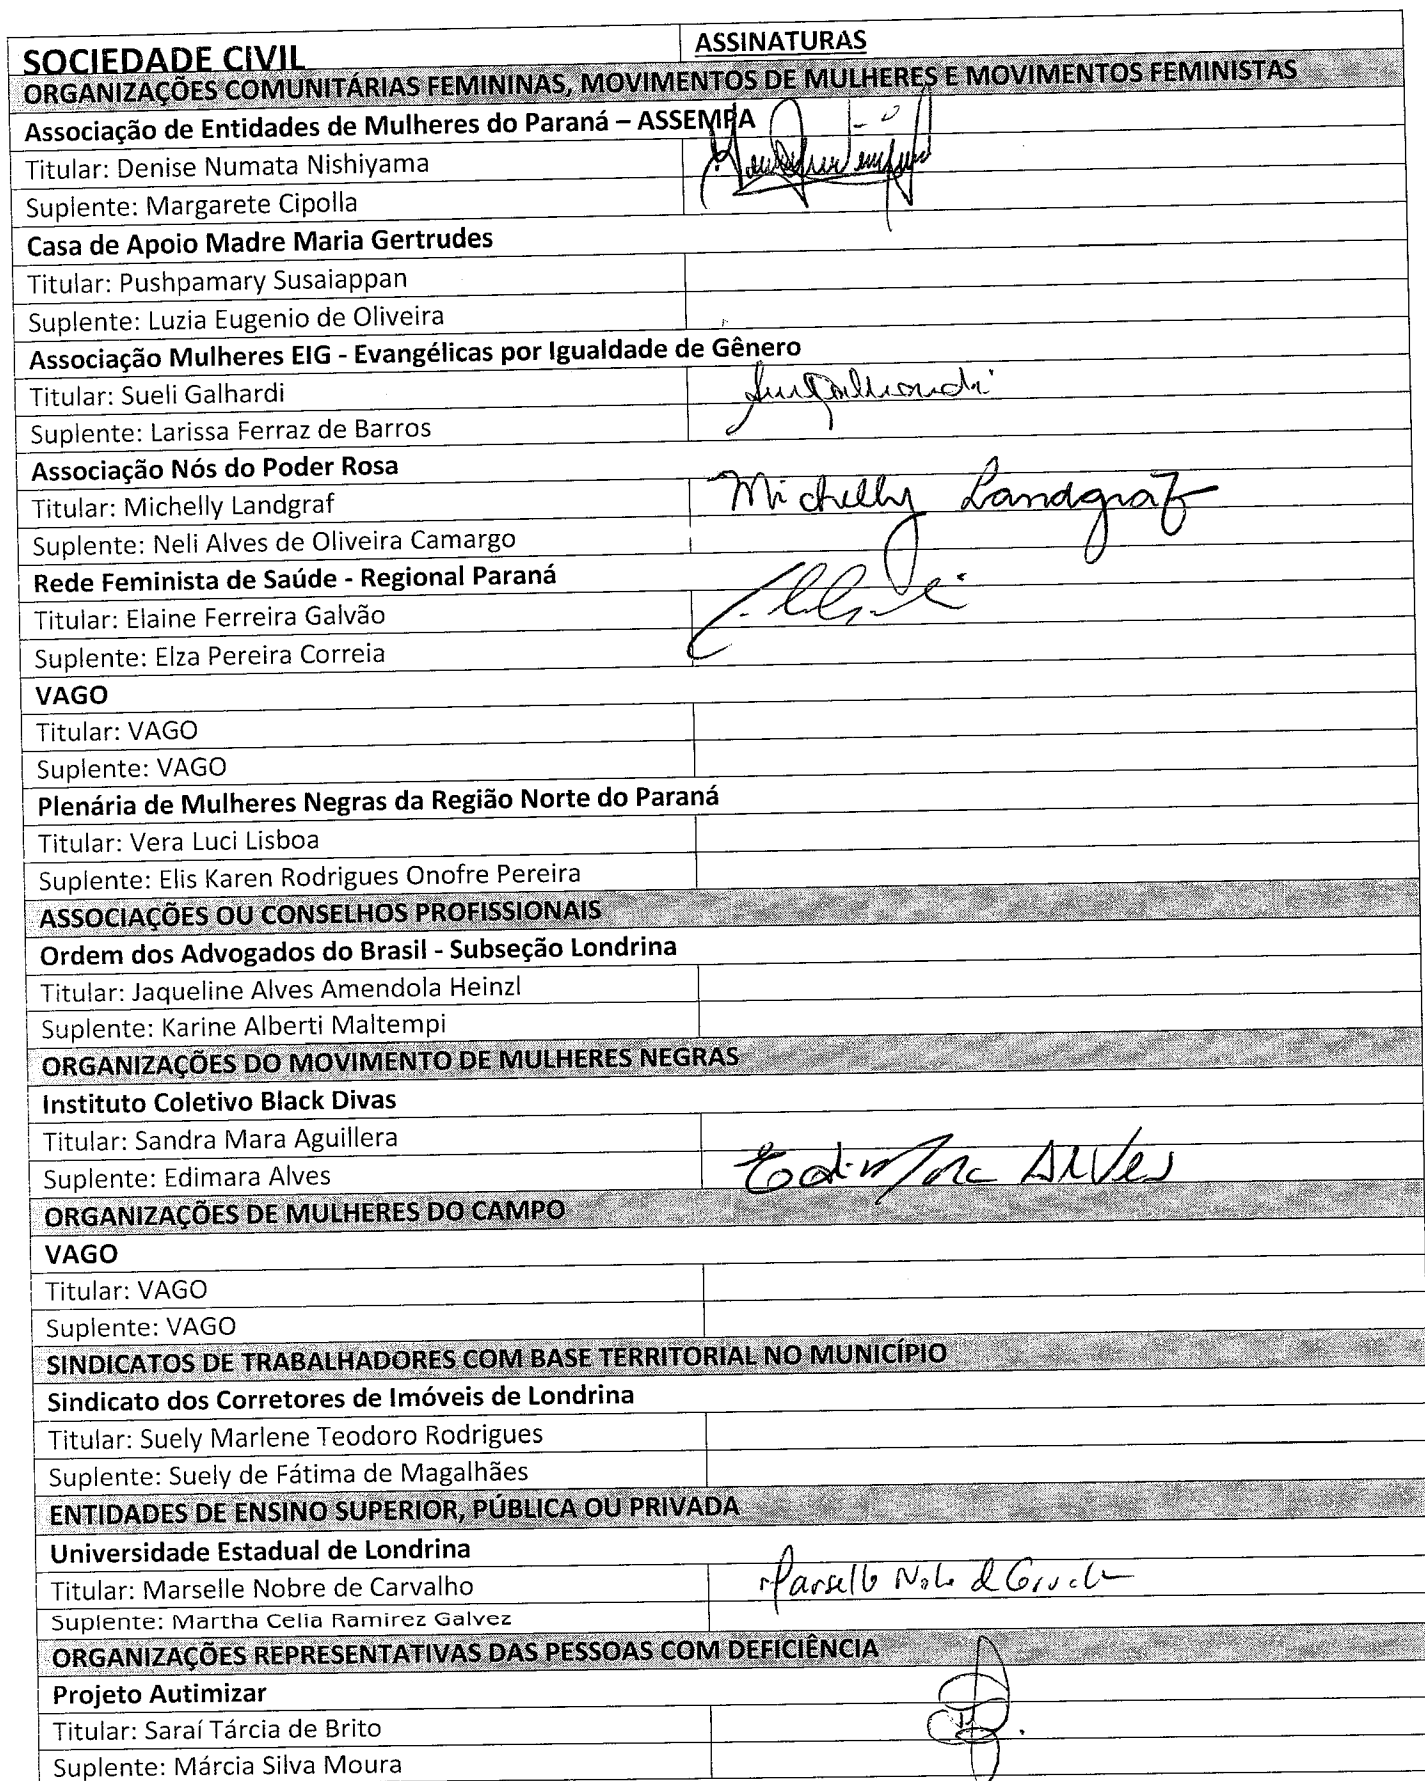 SOCIEDADE CIVIL
ASSINATURAS
ORGANIZAÇÕES COMUNITÁRIAS FEMININAS, MOVIMENTOS DE MULHERES E MOVIMENTOS FEMINISTAS
Associação de Entidades de Mulheres do Paraná – ASSEMPA
Titular: Denise Numata Nishiyama
Suplente: Margarete Cipolla
Casa de Apoio Madre Maria Gertrudes
Titular: Pushpamary Susaiappan
Suplente: Luzia Eugenio de Oliveira
Associação Mulheres EIG - Evangélicas por Igualdade de Gênero
Titular: Sueli Galhardi
Suplente: Larissa Ferraz de Barros
Associação Nós do Poder Rosa
Titular: Michelly Landgraf Michelly Landgraf
Suplente: Neli Alves de Oliveira Camargo
Rede Feminista de Saúde - Regional Paraná
Titular: Elaine Ferreira Galvão
Suplente: Elza Pereira Correia
VAGO
Titular: VAGO
Suplente: VAGO
Plenária de Mulheres Negras da Região Norte do Paraná
Titular: Vera Luci Lisboa
Suplente: Elis Karen Rodrigues Onofre Pereira
ASSOCIAÇÕES OU CONSELHOS PROFISSIONAIS
Ordem dos Advogados do Brasil - Subseção Londrina
Titular: Jaqueline Alves Amendola Heinzl
Suplente: Karine Alberti Maltempi
ORGANIZAÇÕES DO MOVIMENTO DE MULHERES NEGRAS
Instituto Coletivo Black Divas
Titular: Sandra Mara Aguillera
Suplente: Edimara Alves Edimara Alves
ORGANIZAÇÕES DE MULHERES DO CAMPO
VAGO
Titular: VAGO
Suplente: VAGO
SINDICATOS DE TRABALHADORES COM BASE TERRITORIAL NO MUNICÍPIO
Sindicato dos Corretores de Imóveis de Londrina
Titular: Suely Marlene Teodoro Rodrigues
Suplente: Suely de Fátima de Magalhães
ENTIDADES DE ENSINO SUPERIOR, PÚBLICA OU PRIVADA
Universidade Estadual de Londrina
Titular: Marselle Nobre de Carvalho
Suplente: Martha Celia Ramirez Galvez
ORGANIZAÇÕES REPRESENTATIVAS DAS PESSOAS COM DEFICIÊNCIA
Projeto Autimizar
Titular: Saraí Tárcia de Brito
Suplente: Márcia Silva Moura